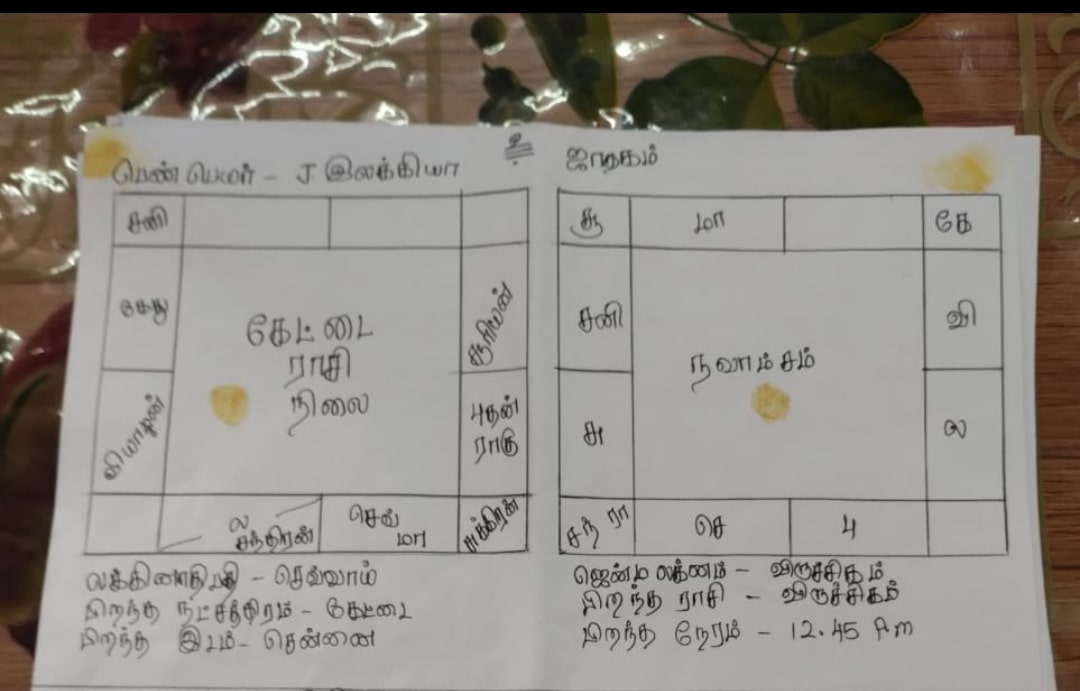 உ
பெண் பெயர் - J இலக்கியா
ஜாதகம்
சனி
கேது
சூரியன்
கேட்டை
ராசி
நிலை
வியாழன்
புதன்
ராகு
ல
சந்திரன்
செவ்
மா
சுக்கிரன்
சூ
மா
கே
சனி
வி
நவாம்சம்
சு
ல
சந் ரா
செ
பு
லக்கினாதிபதி - செவ்வாய்
பிறந்த நட்சத்திரம் - கேட்டை
பிறந்த இடம் - சென்னை
ஜென்ம லக்னம் - விருச்சிகம்
பிறந்த ராசி - விருச்சிகம்
பிறந்த நேரம் - 12.45 P.m